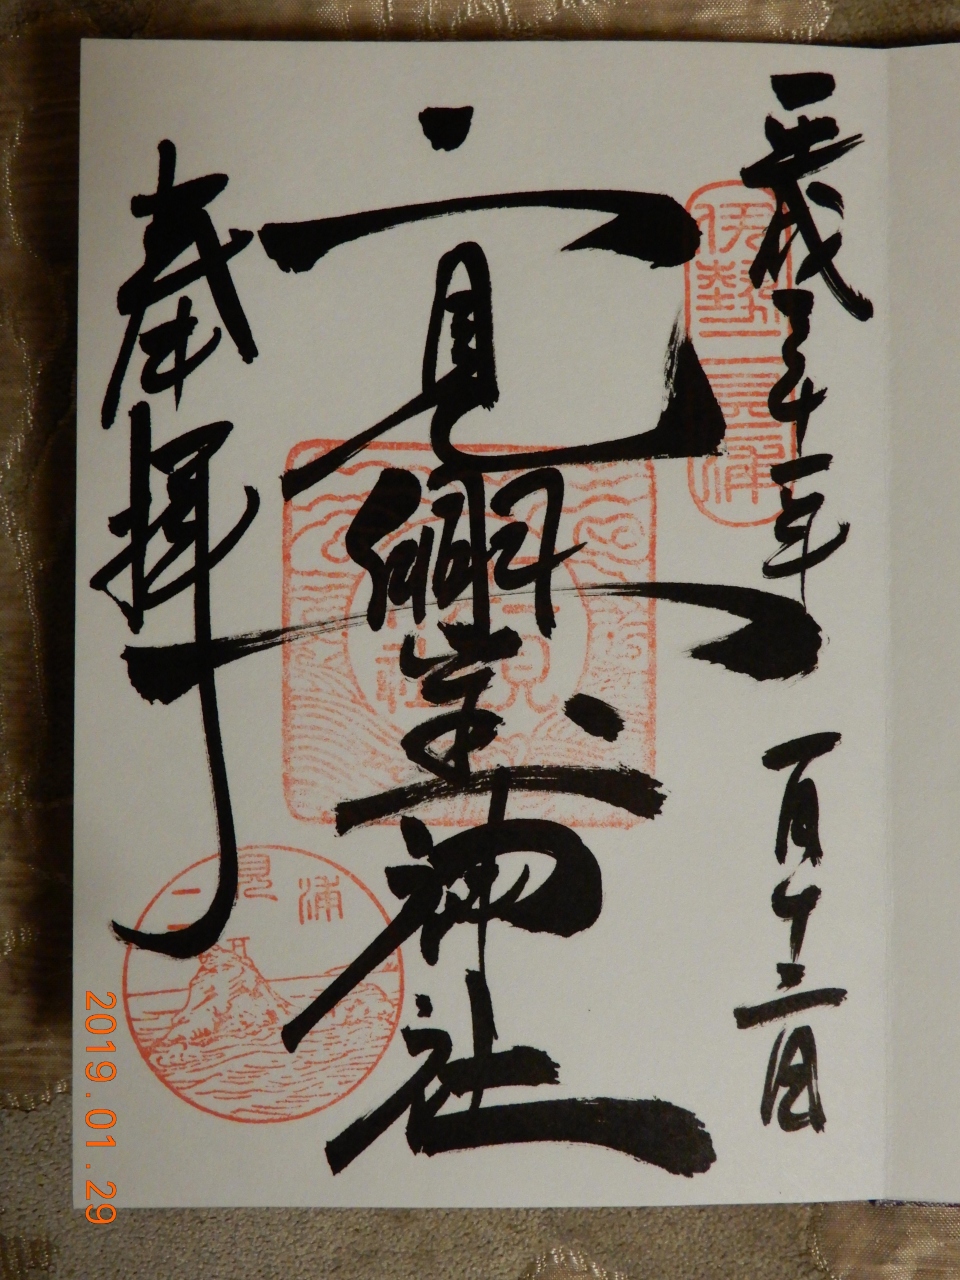 平成三十一年 一月十二日
伊勢二見浦
二見興玉神社
奉拝
二見浦
2019.01.29